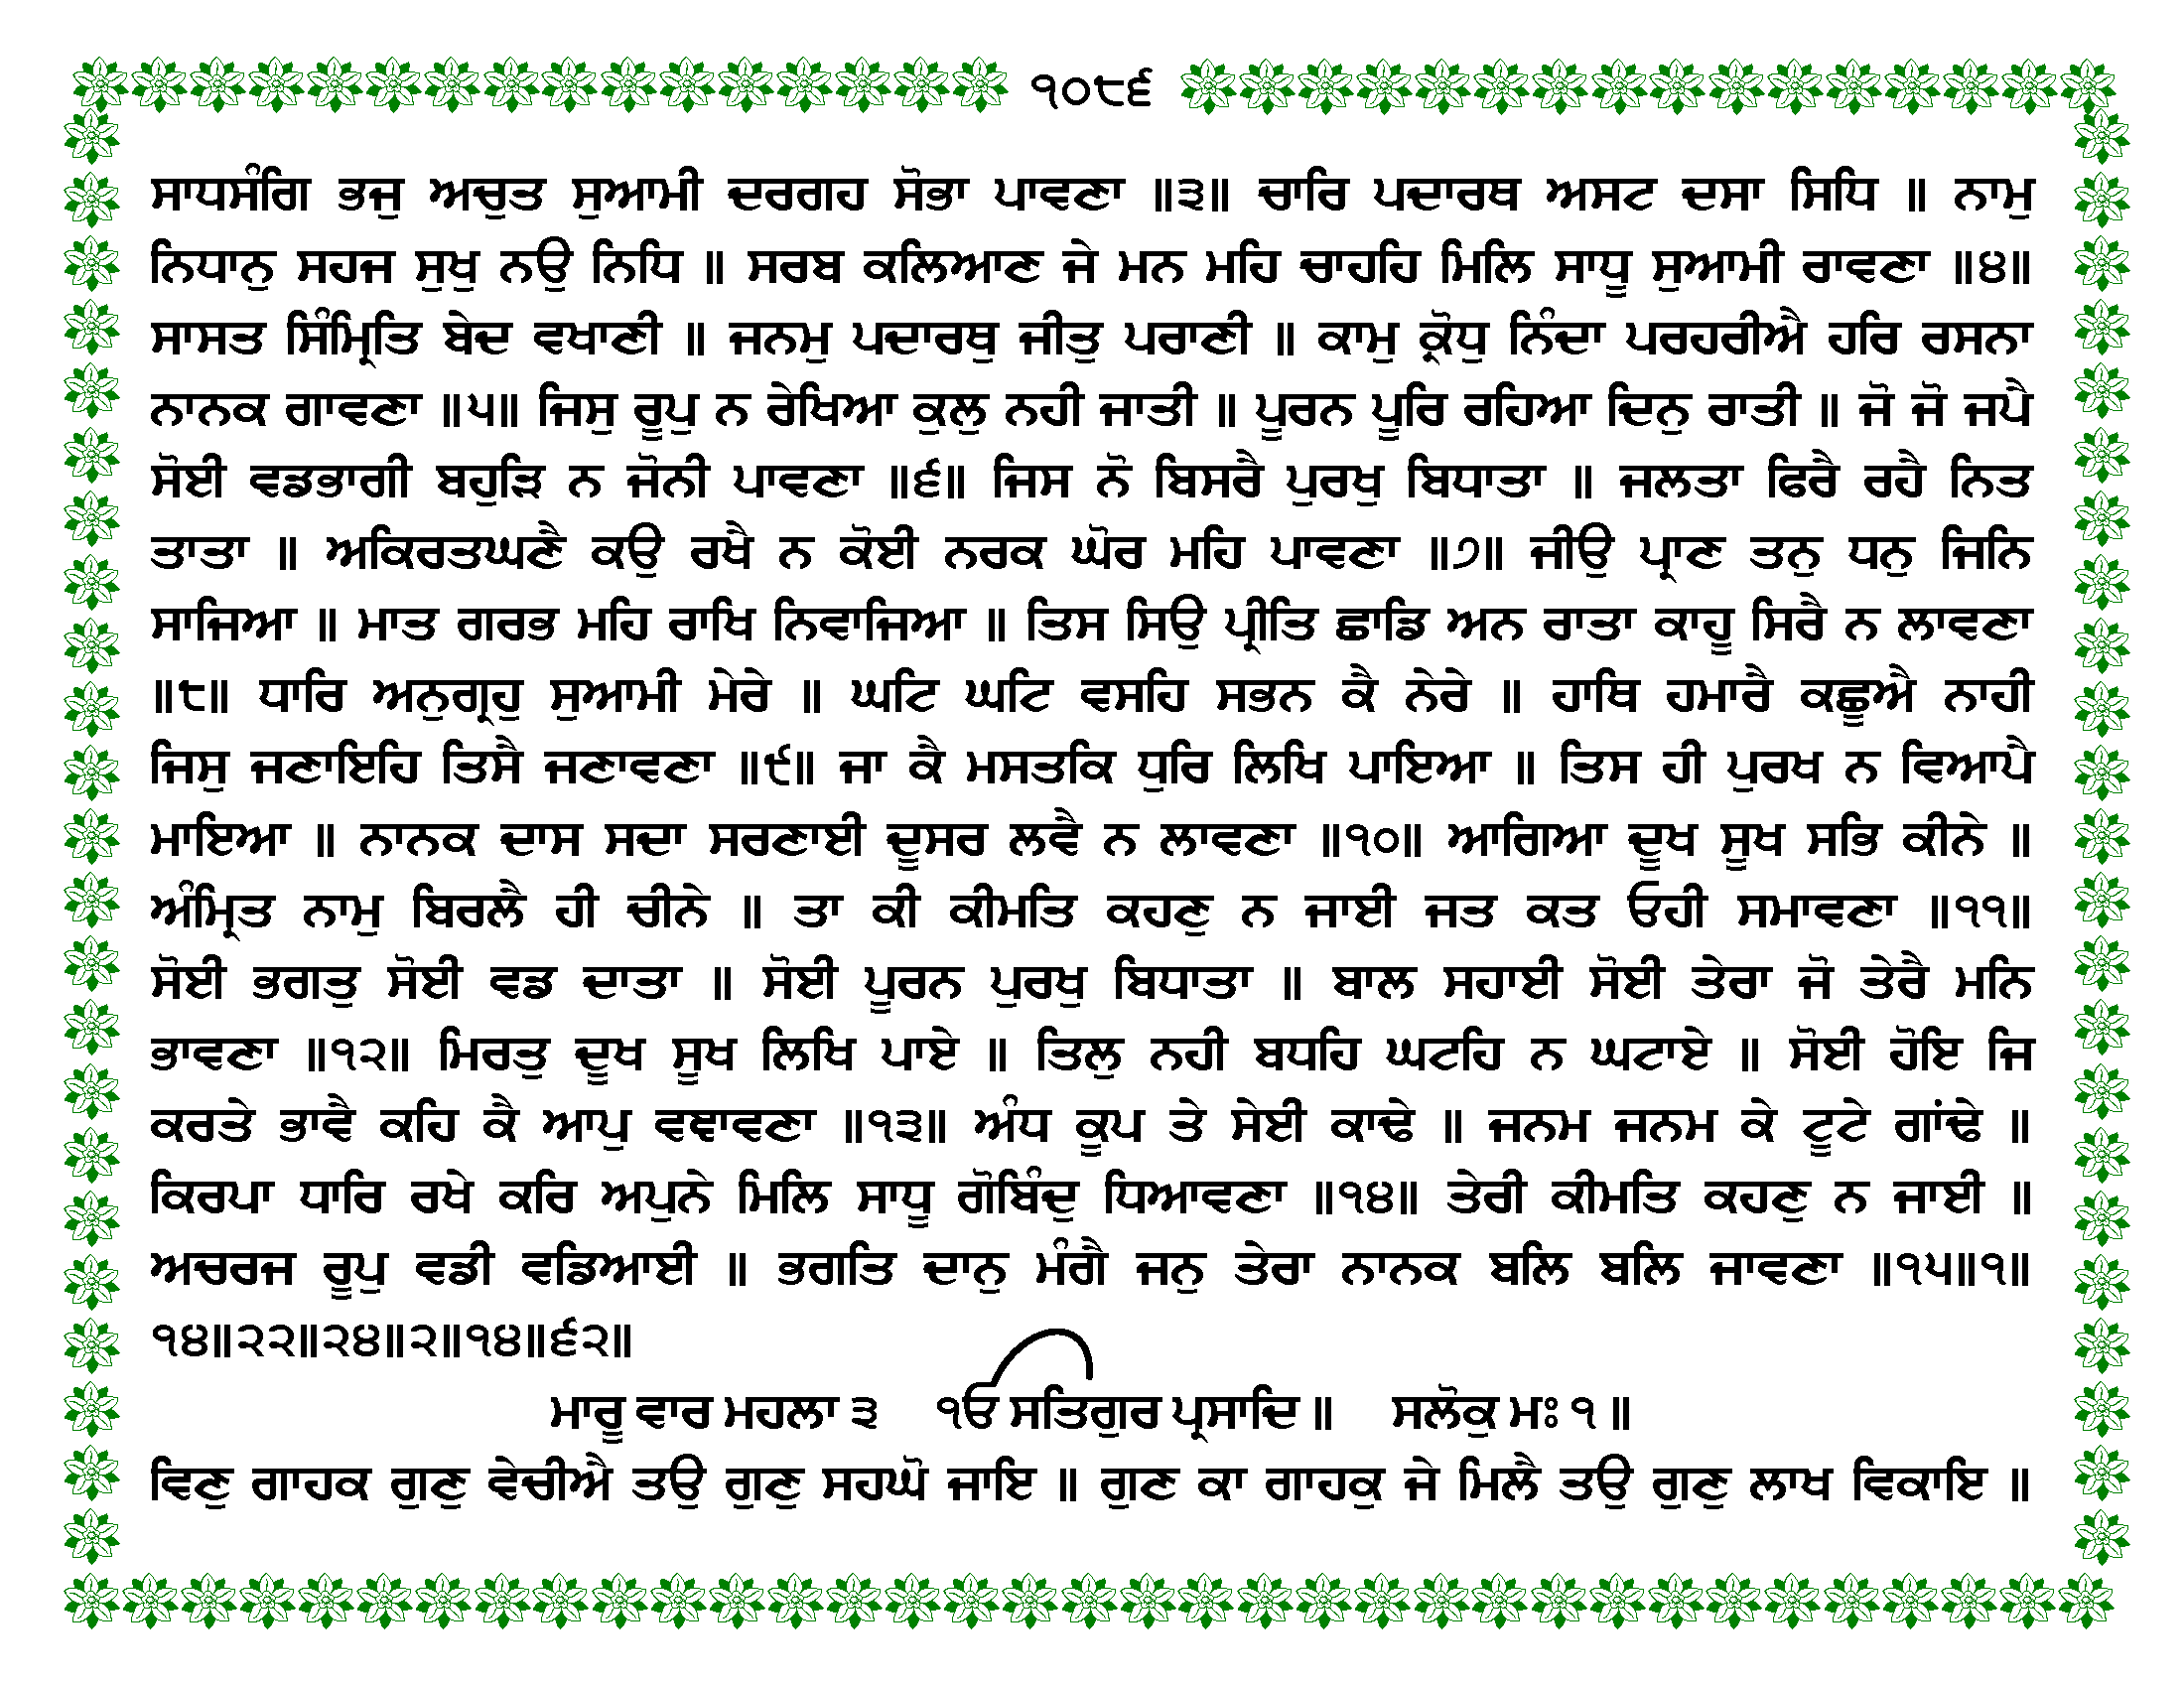 ੧੦੮੬
ਸਾਧਸੰਗਿ ਭਜੁ ਅਚੁਤ ਸੁਆਮੀ ਦਰਗਹ ਸੋਭਾ ਪਾਵਣਾ ॥੩॥ ਚਾਰਿ ਪਦਾਰਥ ਅਸਟ ਦਸਾ ਸਿਧਿ ॥ ਨਾਮੁ
ਨਿਧਾਨੁ ਸਹਜ ਸੁਖੁ ਨਉ ਨਿਧਿ ॥ ਸਰਬ ਕਲਿਆਣ ਜੇ ਮਨ ਮਹਿ ਚਾਹਹਿ ਮਿਲਿ ਸਾਧੂ ਸੁਆਮੀ ਰਾਵਣਾ ॥੪॥
ਸਾਸਤ ਸਿੰਮ੍ਰਿਤਿ ਬੇਦ ਵਖਾਣੀ ॥ ਜਨਮੁ ਪਦਾਰਥੁ ਜੀਤੁ ਪਰਾਣੀ ॥ ਕਾਮੁ ਕ੍ਰੋਧੁ ਨਿੰਦਾ ਪਰਹਰੀਐ ਹਰਿ ਰਸਨਾ
ਨਾਨਕ ਗਾਵਣਾ ॥੫॥ ਜਿਸੁ ਰੂਪੁ ਨ ਰੇਖਿਆ ਕੁਲੁ ਨਹੀ ਜਾਤੀ ॥ ਪੂਰਨ ਪੂਰਿ ਰਹਿਆ ਦਿਨੁ ਰਾਤੀ ॥ ਜੋ ਜੋ ਜਪੈ
ਸੋਈ ਵਡਭਾਗੀ ਬਹੁੜਿ ਨ ਜੋਨੀ ਪਾਵਣਾ ॥੬॥ ਜਿਸ ਨੋ ਬਿਸਰੈ ਪੁਰਖੁ ਬਿਧਾਤਾ ॥ ਜਲਤਾ ਫਿਰੈ ਰਹੈ ਨਿਤ
ਤਾਤਾ ॥ ਅਕਿਰਤਘਣੈ ਕਉ ਰਖੈ ਨ ਕੋਈ ਨਰਕ ਘੋਰ ਮਹਿ ਪਾਵਣਾ ॥੭॥ ਜੀਉ ਪ੍ਰਾਣ ਤਨੁ ਧਨੁ ਜਿਨਿ
ਸਾਜਿਆ ॥ ਮਾਤ ਗਰਭ ਮਹਿ ਰਾਖਿ ਨਿਵਾਜਿਆ ॥ ਤਿਸ ਸਿਉ ਪ੍ਰੀਤਿ ਛਾਡਿ ਅਨ ਰਾਤਾ ਕਾਹੂ ਸਿਰੈ ਨ ਲਾਵਣਾ
॥੮॥ ਧਾਰਿ ਅਨੁਗ੍ਰਹੁ ਸੁਆਮੀ ਮੇਰੇ ॥ ਘਟਿ ਘਟਿ ਵਸਹਿ ਸਭਨ ਕੈ ਨੇਰੇ ॥ ਹਾਥਿ ਹਮਾਰੈ ਕਛੂਐ ਨਾਹੀ
ਜਿਸੁ ਜਣਾਇਹਿ ਤਿਸੈ ਜਣਾਵਣਾ ॥੯॥ ਜਾ ਕੈ ਮਸਤਕਿ ਧੁਰਿ ਲਿਖਿ ਪਾਇਆ ॥ ਤਿਸ ਹੀ ਪੁਰਖ ਨ ਵਿਆਪੈ
ਮਾਇਆ ॥ ਨਾਨਕ ਦਾਸ ਸਦਾ ਸਰਣਾਈ ਦੂਸਰ ਲਵੈ ਨ ਲਾਵਣਾ ॥੧੦॥ ਆਗਿਆ ਦੂਖ ਸੂਖ ਸਭਿ ਕੀਨੇ ॥
ਅੰਮ੍ਰਿਤ ਨਾਮੁ ਬਿਰਲੈ ਹੀ ਚੀਨੇ ॥ ਤਾ ਕੀ ਕੀਮਤਿ ਕਹਣੁ ਨ ਜਾਈ ਜਤ ਕਤ ਓਹੀ ਸਮਾਵਣਾ ॥੧੧॥
ਸੋਈ ਭਗਤੁ ਸੋਈ ਵਡ ਦਾਤਾ ॥ ਸੋਈ ਪੂਰਨ ਪੁਰਖੁ ਬਿਧਾਤਾ ॥ ਬਾਲ ਸਹਾਈ ਸੋਈ ਤੇਰਾ ਜੋ ਤੇਰੈ ਮਨਿ
ਭਾਵਣਾ ॥੧੨॥ ਮਿਰਤੁ ਦੂਖ ਸੂਖ ਲਿਖਿ ਪਾਏ ॥ ਤਿਲੁ ਨਹੀ ਬਧਹਿ ਘਟਹਿ ਨ ਘਟਾਏ ॥ ਸੋਈ ਹੋਇ ਜਿ
ਕਰਤੇ ਭਾਵੈ ਕਹਿ ਕੈ ਆਪੁ ਵਞਾਵਣਾ ॥੧੩॥ ਅੰਧ ਕੂਪ ਤੇ ਸੇਈ ਕਾਢੇ ॥ ਜਨਮ ਜਨਮ ਕੇ ਟੂਟੇ ਗਾਂਢੇ ॥
ਕਿਰਪਾ ਧਾਰਿ ਰਖੇ ਕਰਿ ਅਪੁਨੇ ਮਿਲਿ ਸਾਧੂ ਗੋਬਿੰਦੁ ਧਿਆਵਣਾ ॥੧੪॥ ਤੇਰੀ ਕੀਮਤਿ ਕਹਣੁ ਨ ਜਾਈ ॥
ਅਚਰਜ ਰੂਪੁ ਵਡੀ ਵਡਿਆਈ ॥ ਭਗਤਿ ਦਾਨੁ ਮੰਗੈ ਜਨੁ ਤੇਰਾ ਨਾਨਕ ਬਲਿ ਬਲਿ ਜਾਵਣਾ ॥੧੫॥੧॥
੧੪॥੨੨॥੨੪॥੨॥੧੪॥੬੨॥
ਮਾਰੂ ਵਾਰ ਮਹਲਾ ੩ ੴ ਸਤਿਗੁਰ ਪ੍ਰਸਾਦਿ ॥ ਸਲੋਕੁ ਮਃ ੧ ॥
ਵਿਣੁ ਗਾਹਕ ਗੁਣੁ ਵੇਚੀਐ ਤਉ ਗੁਣੁ ਸਹਘੋ ਜਾਇ ॥ ਗੁਣ ਕਾ ਗਾਹਕੁ ਜੇ ਮਿਲੈ ਤਉ ਗੁਣੁ ਲਾਖ ਵਿਕਾਇ ॥